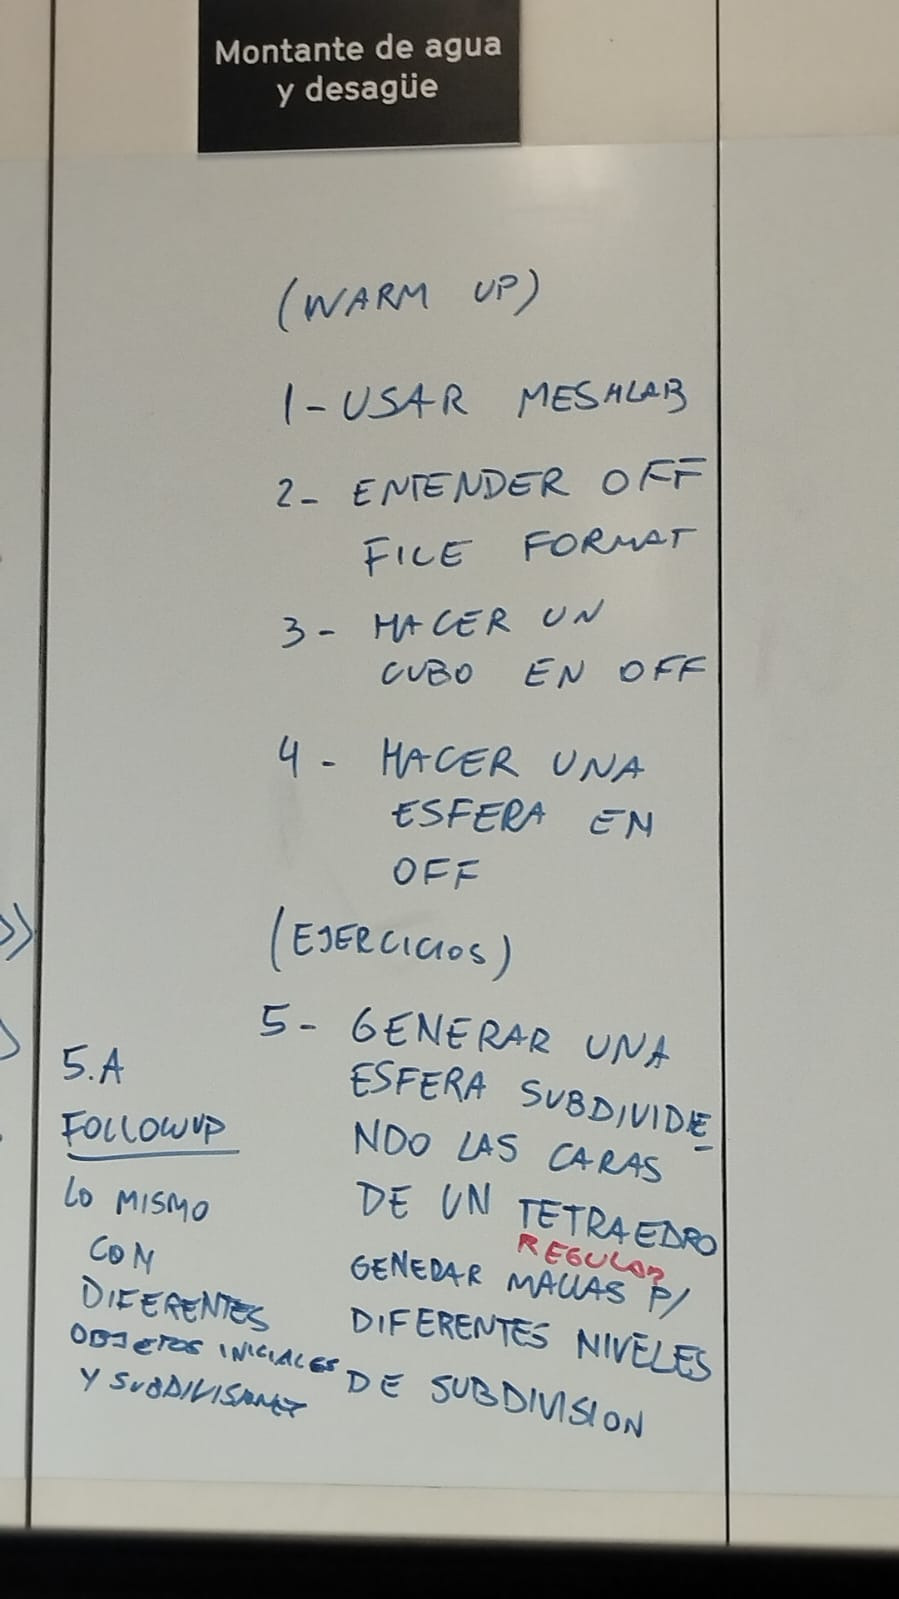 Montante de agua
y desagüe
(WARM UP)
1- USAR MESHLAB
2- ENTENDER OFF
FILE FORMAT
3- HACER UN
CUBO EN OFF
4- HACER UNA
ESFERA EN
OFF
(EJERCICIOS)
5- GENERAR UNA
ESFERA SUBDIVIDE
NDO LAS CARAS
DE UN TETRAEDRO
REGULAR
GENERAR MALLAS P/
DIFERENTES NIVELES
DE SUBDIVISION
5.A
FOLLOWUP
LO MISMO
CON
DIFERENTES
OBJETOS INICIALES
Y SUBDIVISIONES